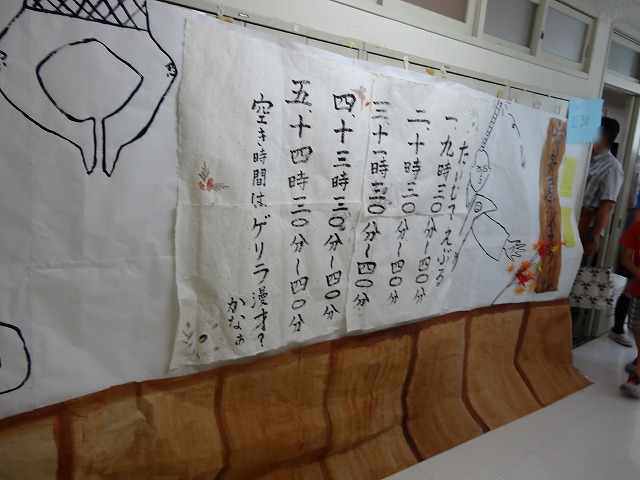 たいむてえぶる
一、九時三〇分〜四〇分
二、十時三〇分〜四〇分
三、十一時三〇分〜四〇分
四、十三時三〇分〜四〇分
五、十四時三〇分〜四〇分
空き時間は、ゲリラ漫才？
かなぁ